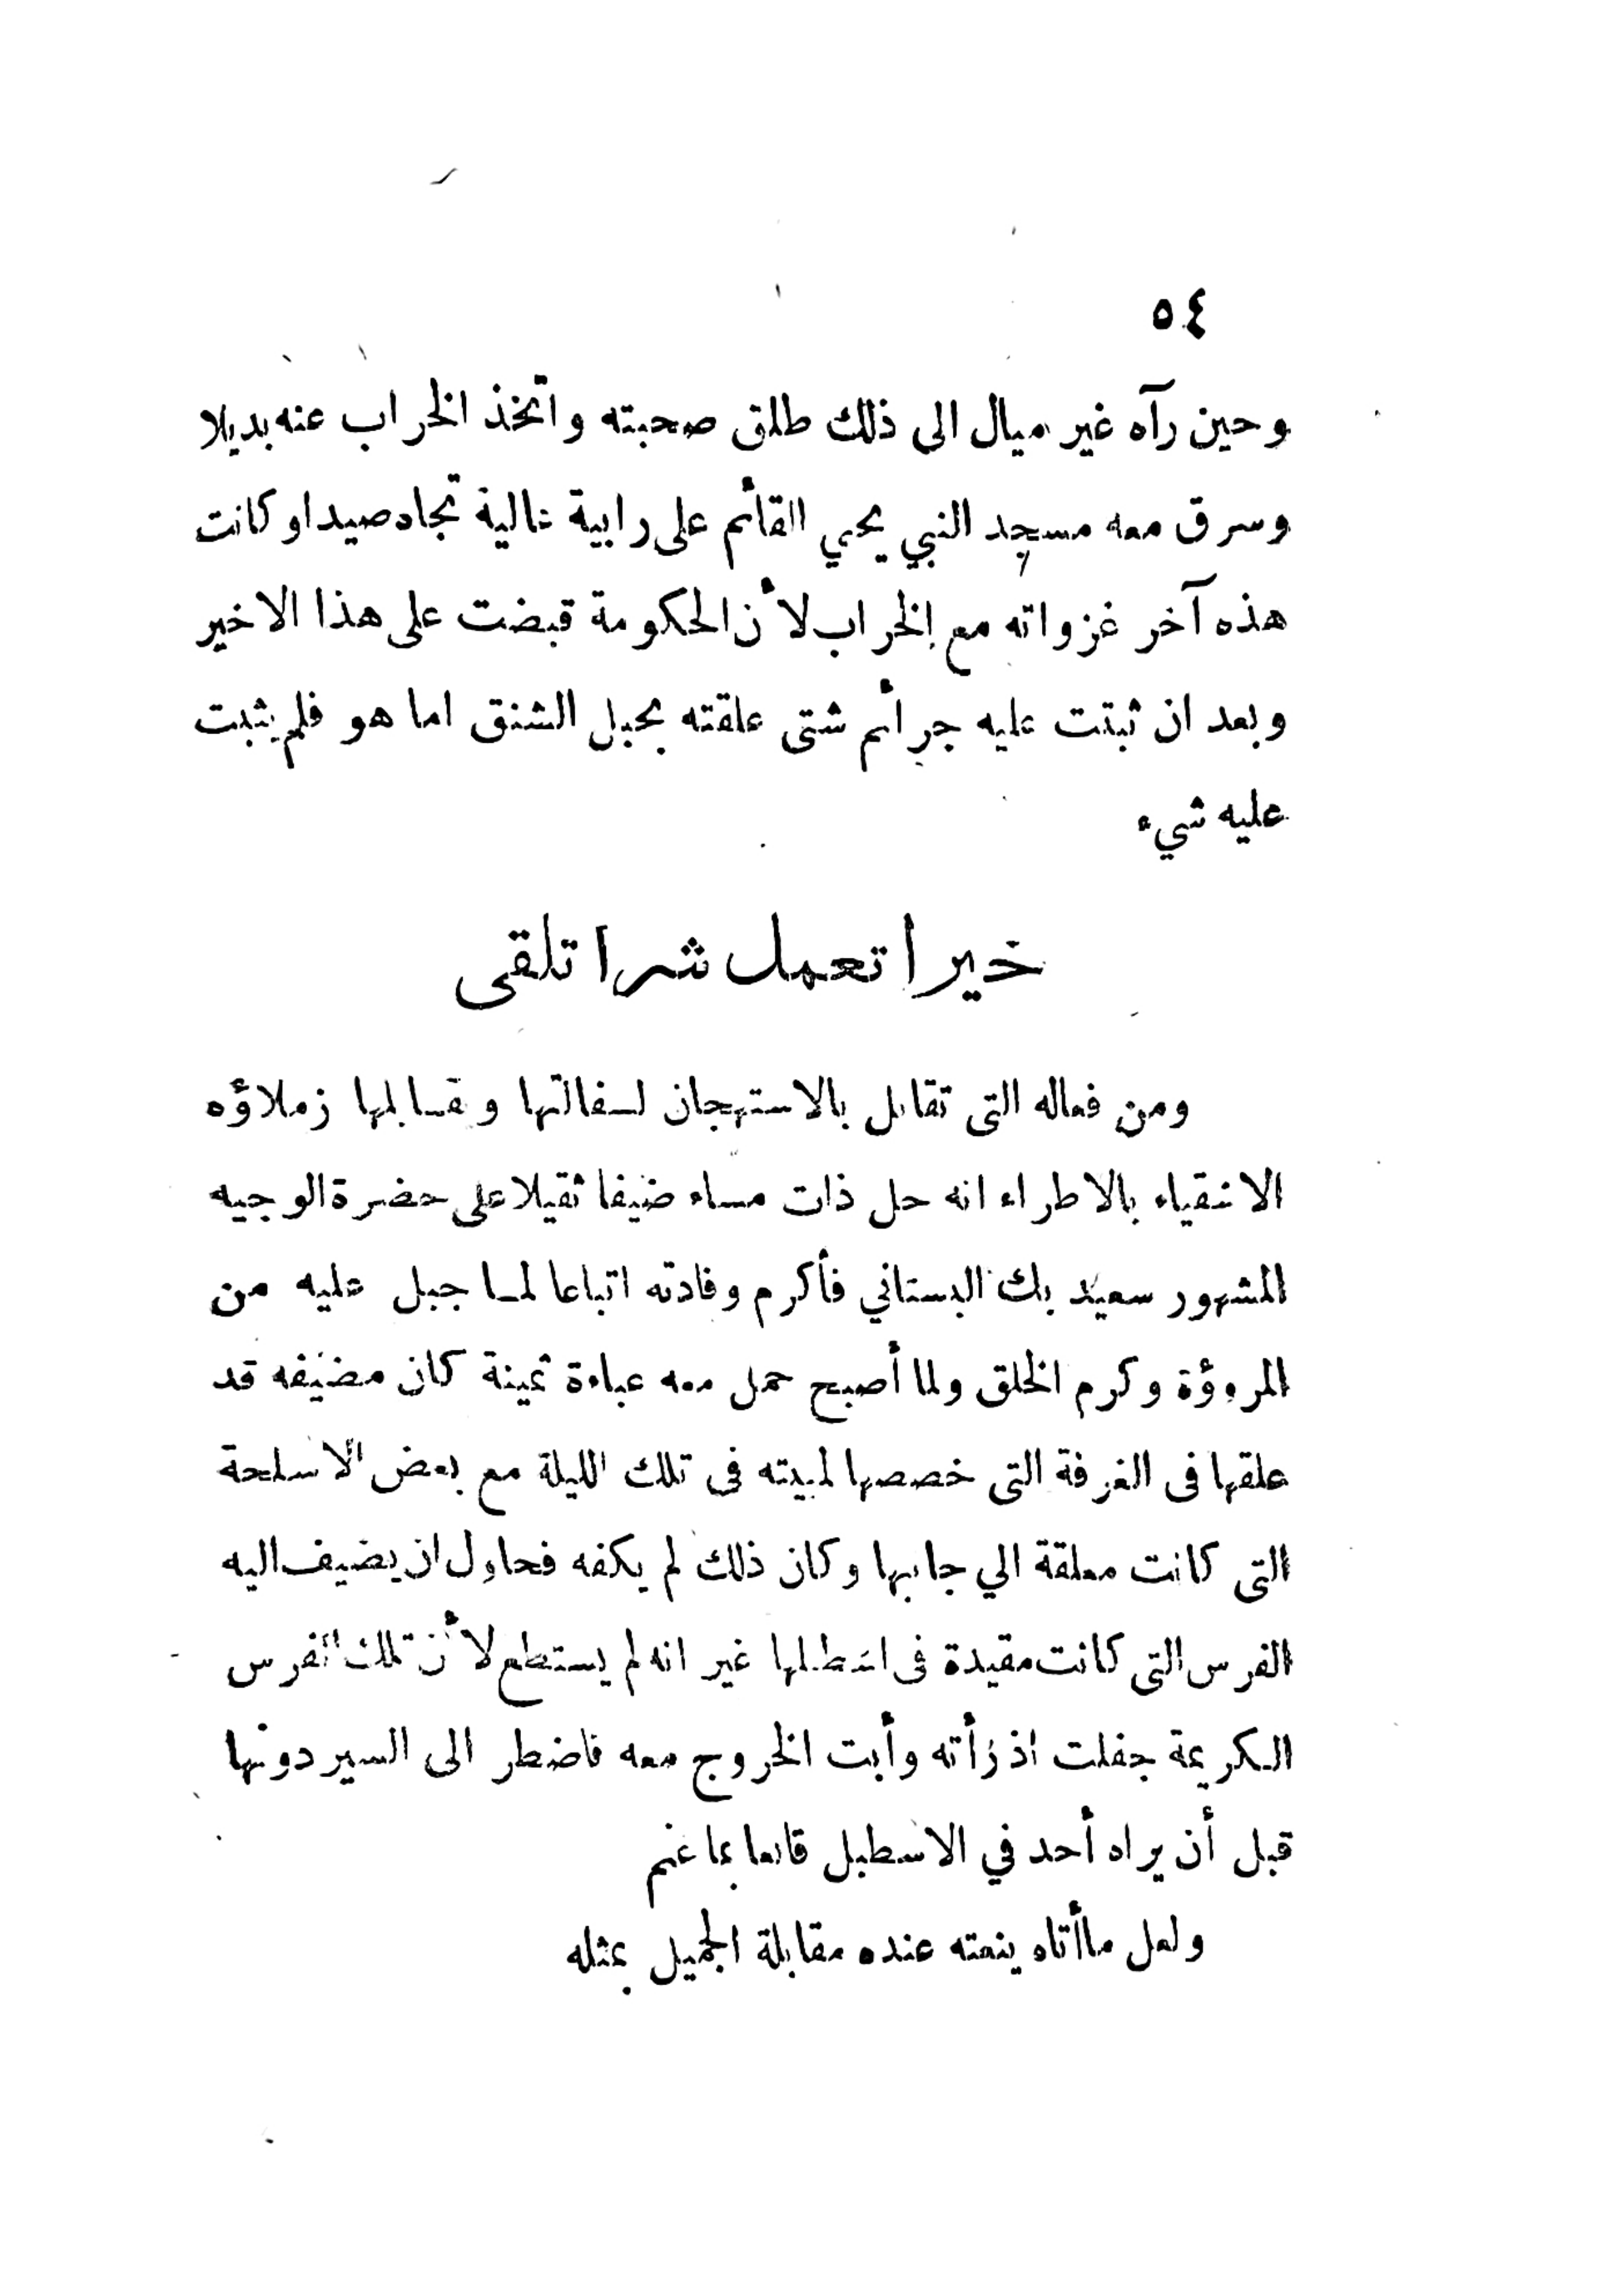 ٥٤
وحين رآه غير ميال الى ذلك طلق صحبته واتخذ الخراب عنه بديلا
وسرق معه مسجد النبي يحي القائم على رابية عالية تجاه صيدا وكانت
هذه آخر غزواته مع الخراب لأن الحكومة قبضت على هذا الاخير
وبعد ان ثبتت عليه جرائم شتى علقته بحبل الشنق اما هو فلم يثبت
عليه شيء
خيرا تعمل شرا تلقى
ومن فعاله التى تقابل بالاستهجان لسفالتها ويقابلها زملاؤه
الاشقياء بالاطراء انه حل ذات مساء ضيفا ثقيلا على حضرة الوجيه
المشهور سعيد بك البستاني فأكرم وفادته اتباعا لما جبل عليه من
المروؤة وكرم الخلق ولما أصبح حمل معه عباءة ثمينة كان مضيفه قد
علقها فى الغرفة التى خصصها لمبيته فى تلك الليلة مع بعض الاسلحة
التى كانت معلقة الي جانبها وكان ذلك لم يكفه فحاول ان يضيف اليه
الفرس التى كانت مقيدة فى اسطبلها غير انه لم يستطع لأن تلك الفرس
الكريمة جفلت اذ رأته وأبت الخروج معه فاضطر الى السير دونها
قبل أن يراه أحد في الاسطبل قانعا بما غنم
ولعل ماأتاه ينعته عنده مقابلة الجميل بمثله